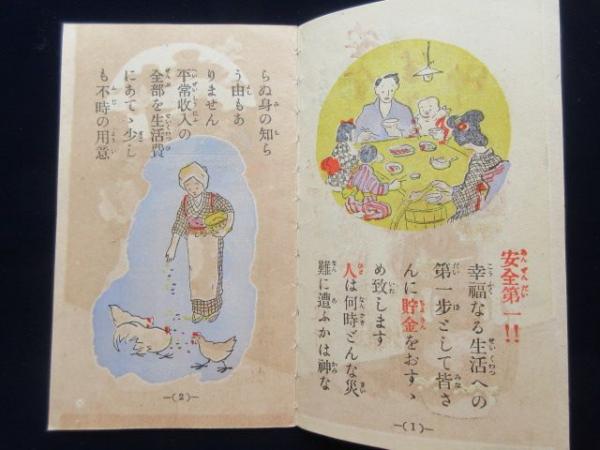 安全第一!!
幸福なる生活への
第一歩として皆さ
んに貯金をおすゝ
め致します
人は何時どんな災
難に遭ふかは神な
—(1)—
らぬ身の知ら
う由もあ
りません
平常収入の
全部を生活費
にあてゝ少し
も不時の用意
—(2)—